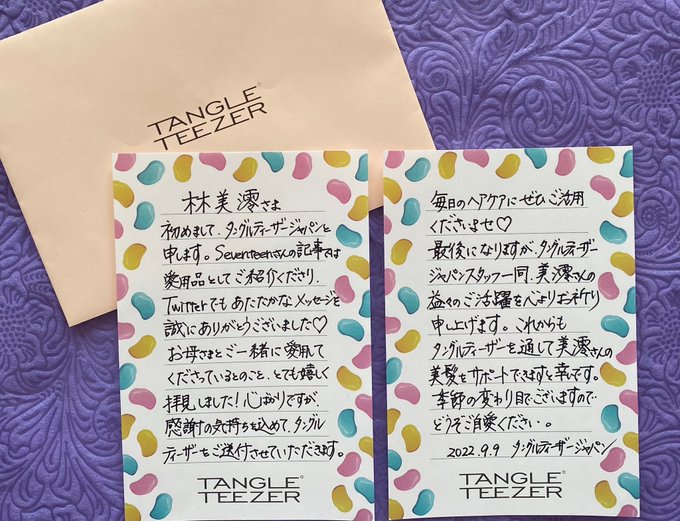 TANGLE
TEEZER
林美澪さま
初めまして、タングルティーザージャパンと
申します。Seventeenさんの記事では
愛用品としてご紹介くださり、
Twitterでもあたたかなメッセージを
誠にありがとうございました♡
お母さまとご一緒に愛用して
くださっているとのこと、とても嬉しく
拝見しました！心ばかりですが、
感謝の気持ちを込めて、タングル
ティーザーをご送付させていただきます。
TANGLE
TEEZER
毎日のヘアケアにぜひご活用
くださいませ♡
最後になりますが、タングルティーザー
ジャパンスタッフ一同、美澪さんの
益々のご活躍を心よりお祈り
申し上げます。これからも
タングルティーザーを通して美澪さんの
美髪をサポートできますと幸いです。
季節の変わり目でございますので
どうぞご自愛ください。
2022.9.9 タングルティーザージャパン
TANGLE
TEEZER